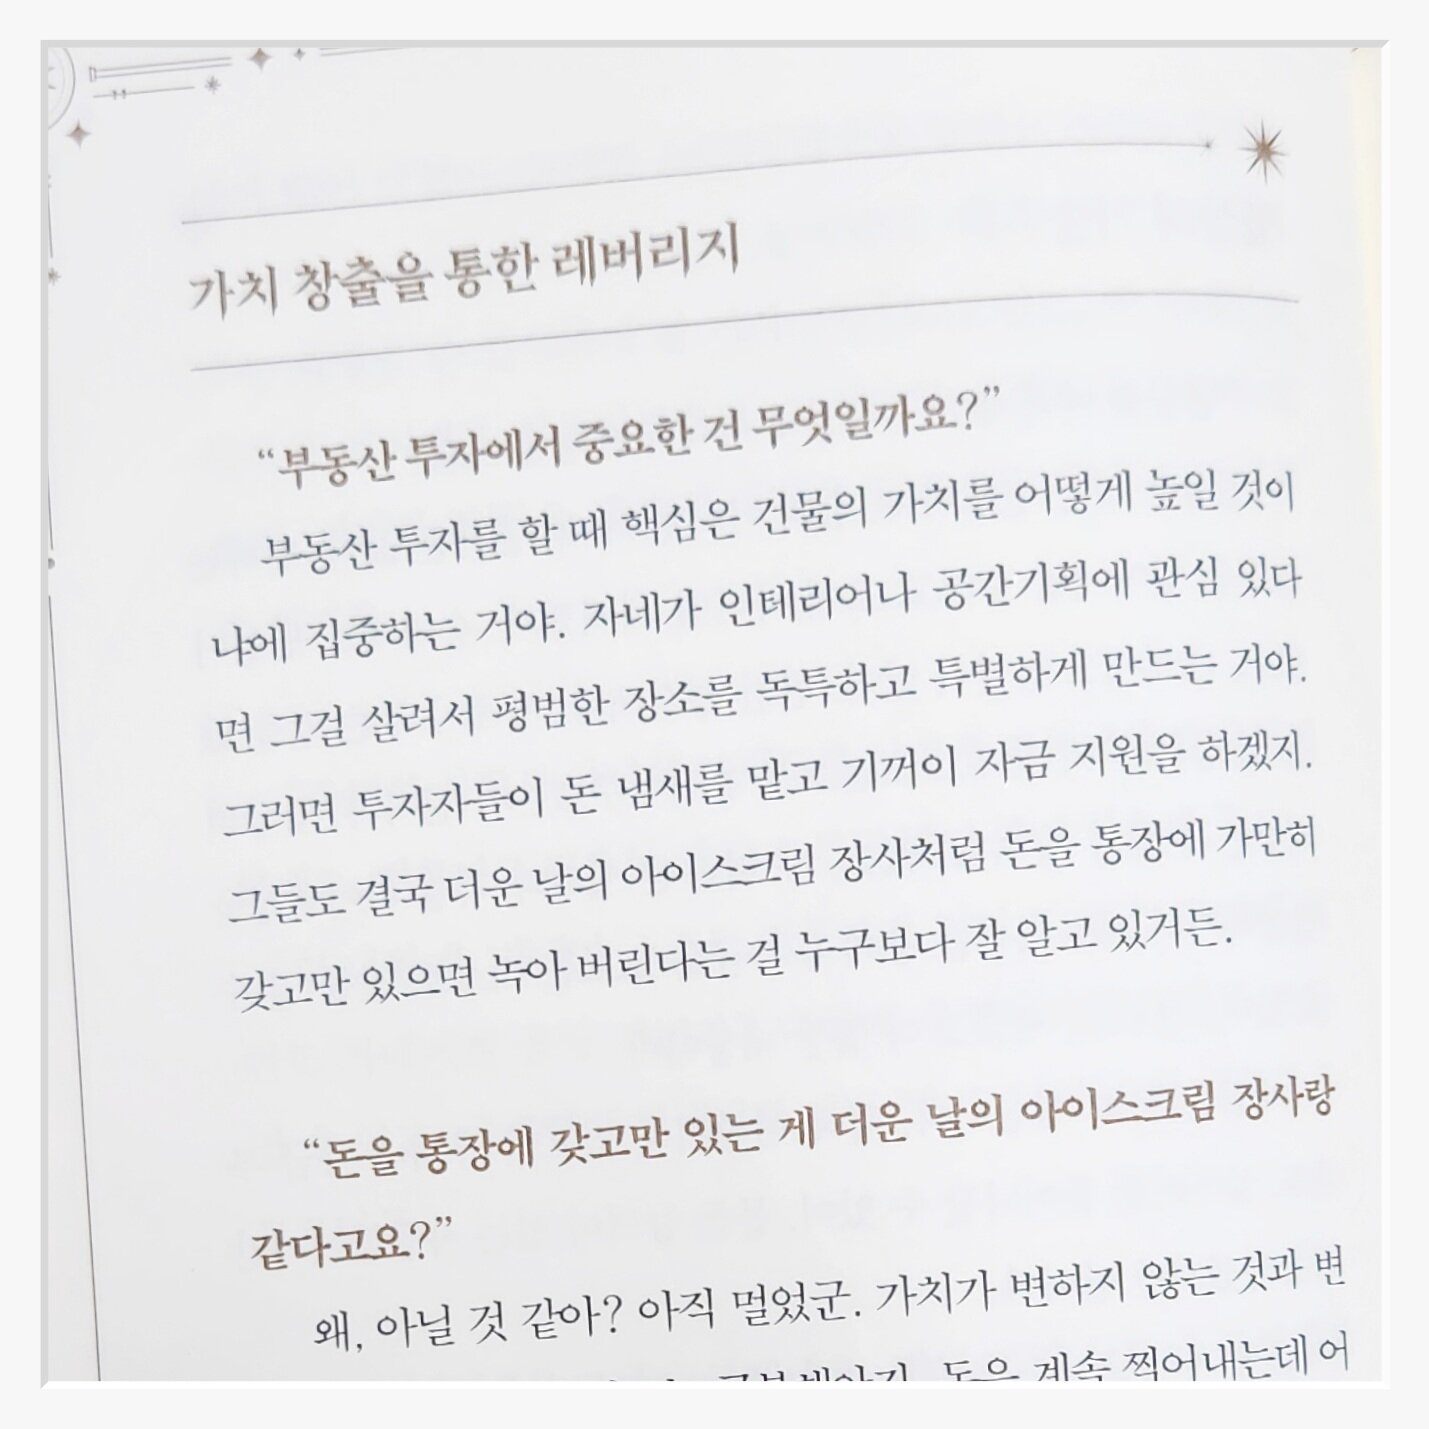 가치 창출을 통한 레버리지
“부동산 투자에서 중요한 건 무엇일까요?”
부동산 투자를 할 때 핵심은 건물의 가치를 어떻게 높일 것이
냐에 집중하는 거야. 자네가 인테리어나 공간기획에 관심 있다
면 그걸 살려서 평범한 장소를 독특하고 특별하게 만드는 거야.
그러면 투자자들이 돈 냄새를 맡고 기꺼이 자금 지원을 하겠지.
그들도 결국 더운 날의 아이스크림 장사처럼 돈을 통장에 가만히
갖고만 있으면 녹아 버린다는 걸 누구보다 잘 알고 있거든.
“돈을 통장에 갖고만 있는 게 더운 날의 아이스크림 장사랑
같다고요?”
왜, 아닐 것 같아? 아직 멀었군. 가치가 변하지 않는 것과 변
돈은 계속 찍어내는데 어